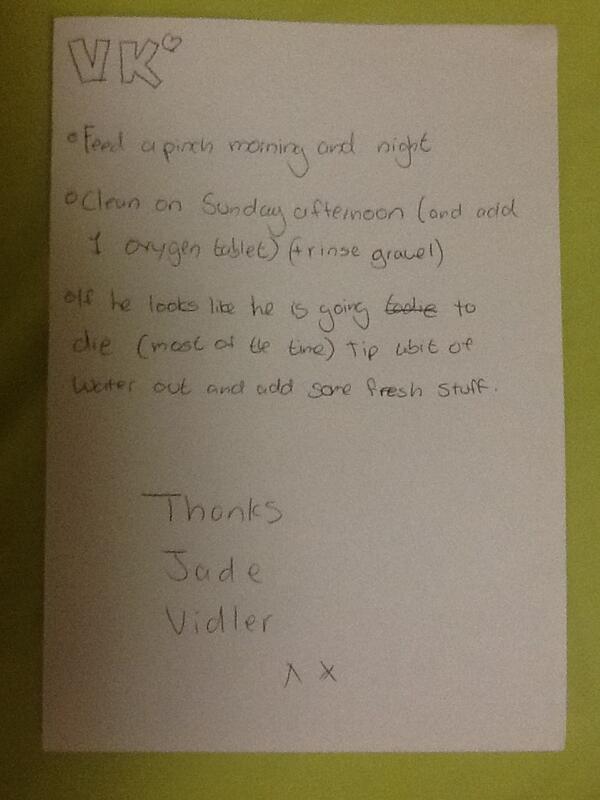 VK♡
• Feed a pinch morning and night
• Clean on Sunday afternoon (and add
1 oxygen tablet) (+ rinse gravel)
• If he looks like he is going todie to
die (most of the time) Tip abit of
water out and add some fresh stuff.
Thanks
Jade
Vidler
x x